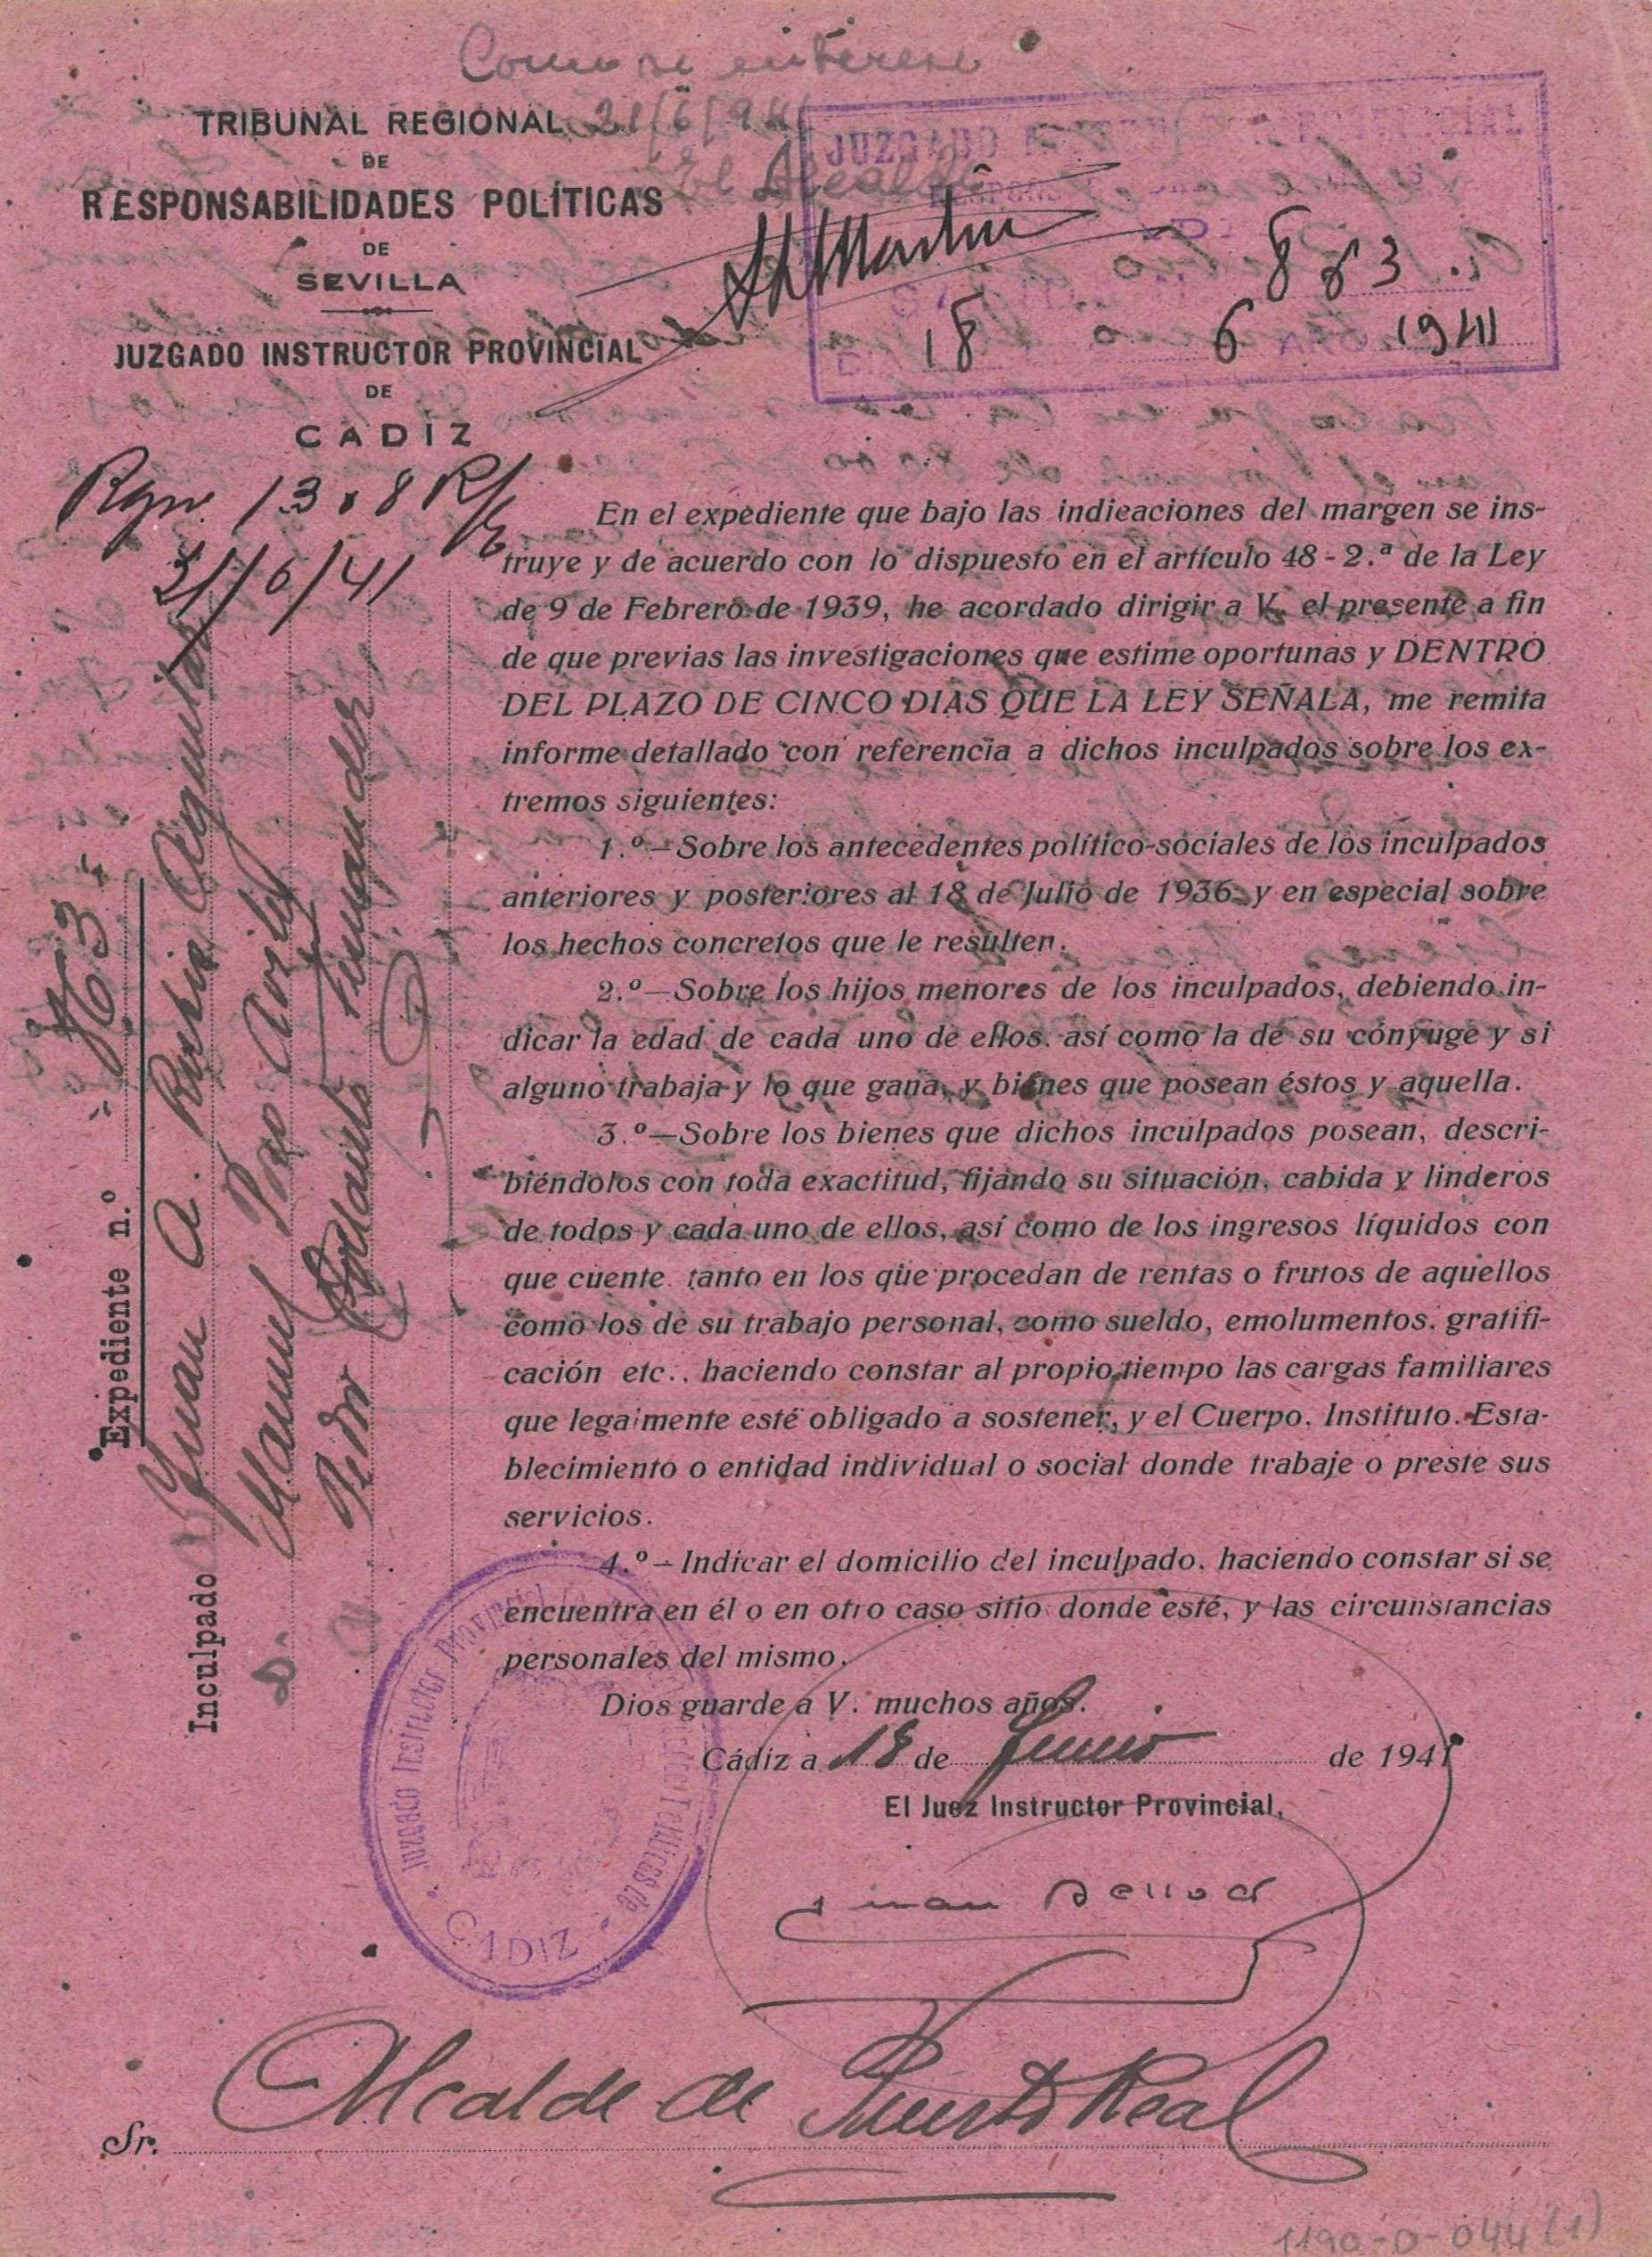 Como se interesa
21/6/941
El Alcalde
TRIBUNAL REGIONAL
DE
RESPONSABILIDADES POLÍTICAS
DE
SEVILLA
JUZGADO INSTRUCTOR PROVINCIAL
DE
CADIZ
JUZGADO
863
DIA 18 6 AÑO 1941
21/6/41
Expediente n.º
Inculpado Juan A.
Manuel
Pedro Fernandez
En el expediente que bajo las indicaciones del margen se ins-
truye y de acuerdo con lo dispuesto en el artículo 48-2.ª de la Ley
de 9 de Febrero de 1939, he acordado dirigir a V. el presente a fin
de que previas las investigaciones que estime oportunas y DENTRO
DEL PLAZO DE CINCO DIAS QUE LA LEY SEÑALA, me remita
informe detallado con referencia a dichos inculpados sobre los ex-
tremos siguientes:
1.º—Sobre los antecedentes político-sociales de los inculpados
anteriores y posteriores al 18 de Julio de 1936, y en especial sobre
los hechos concretos que le resulten.
2.º—Sobre los hijos menores de los inculpados, debiendo in-
dicar la edad de cada uno de ellos, así como la de su cónyuge y si
alguno trabaja y lo que gana, y bienes que posean éstos y aquella.
3.º—Sobre los bienes que dichos inculpados posean, descri-
biéndolos con toda exactitud, fijando su situación, cabida y linderos
de todos y cada uno de ellos, así como de los ingresos líquidos con
que cuente, tanto en los que procedan de rentas o frutos de aquellos
como los de su trabajo personal, como sueldo, emolumentos, gratifi-
cación etc., haciendo constar al propio tiempo las cargas familiares
que legalmente esté obligado a sostener, y el Cuerpo, Instituto, Esta-
blecimiento o entidad individual o social donde trabaje o preste sus
servicios.
4.º—Indicar el domicilio del inculpado, haciendo constar si se
encuentra en él o en otro caso sitio donde esté, y las circunstancias
personales del mismo.
Dios guarde a V. muchos años.
Cádiz a 18 de Junio de 1941
El Juez Instructor Provincial,
Juzgado Instructor Provincial
CADIZ
Sr. Alcalde de Puerto Real
1190-D-044(1)